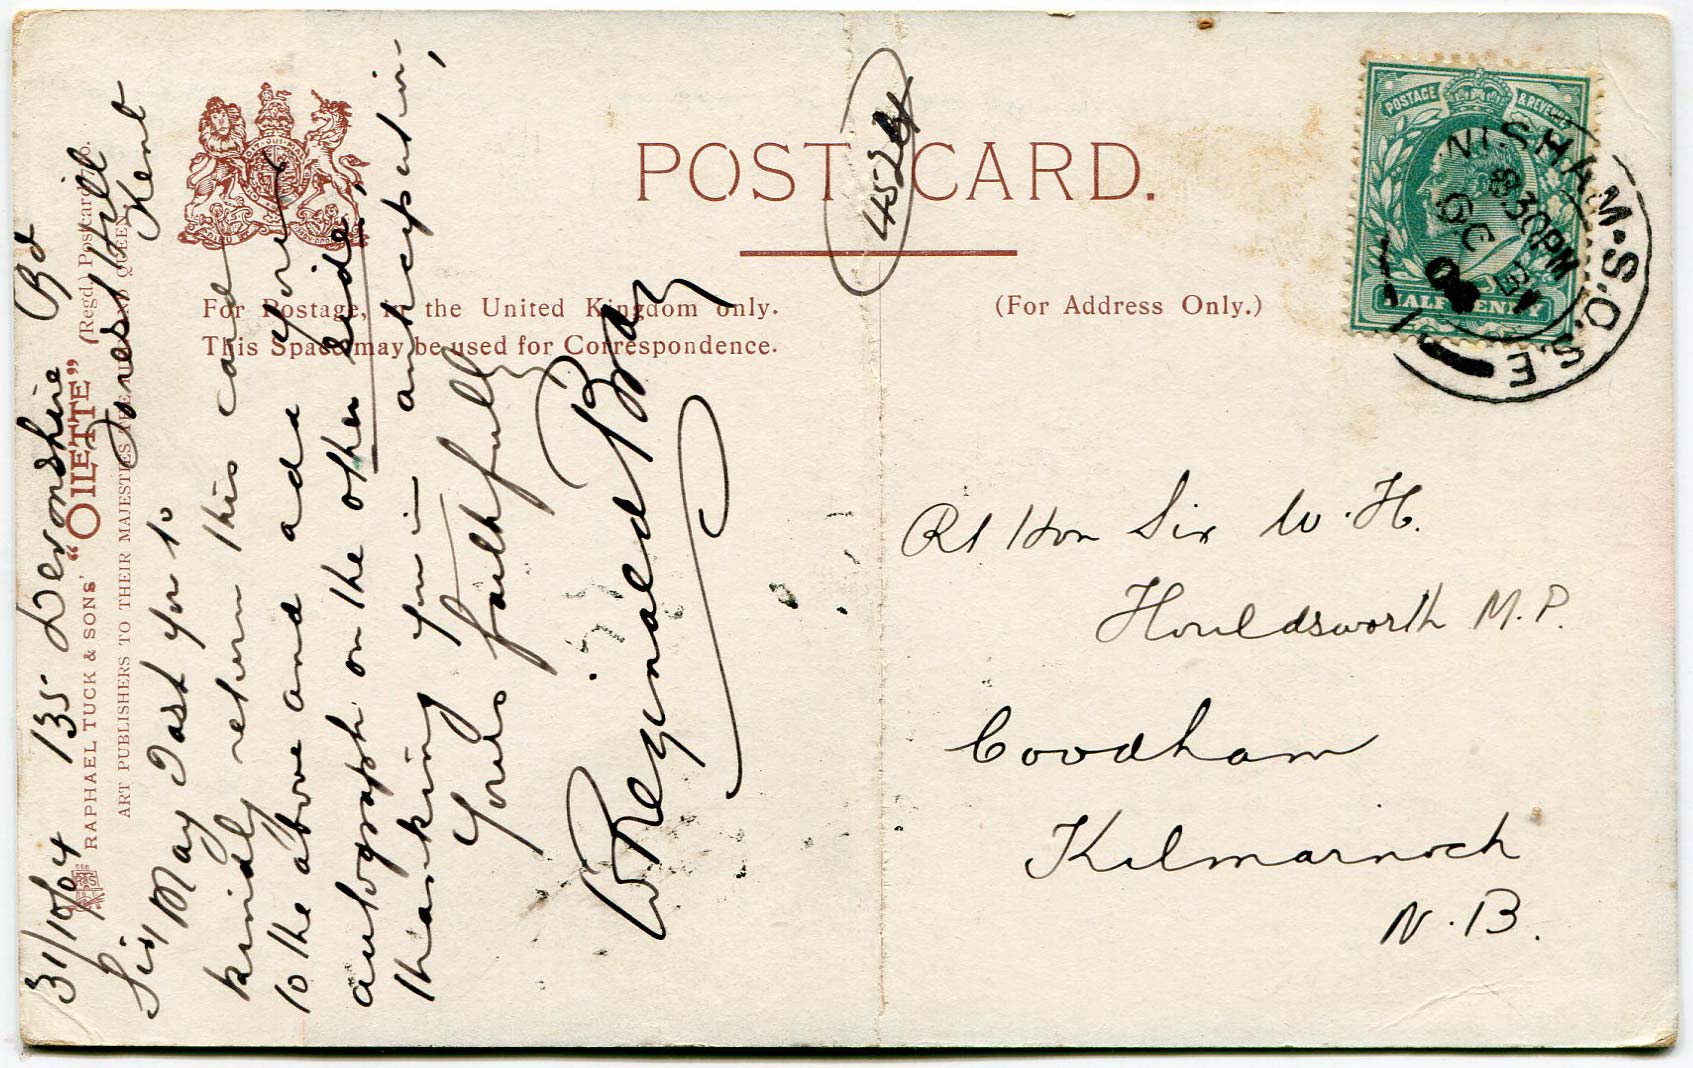 POST CARD.
4524
For Postage, in the United Kingdom only.
This Space may be used for Correspondence.
(For Address Only.)
RAPHAEL TUCK & SONS' "OILETTE" (Regd.) Postcard
ART PUBLISHERS TO THEIR MAJESTIES THE KING AND QUEEN
31/10/04 135 Devonshire Rd
Forest Hill
Kent
Sir,
May I ask you to
kindly return this card
to the above and add your
autograph on the other side,
thanking you in antecipation,
Yours faithfully
Reginald Bray
Rt Hon Sir W. H.
Houldsworth M.P.
Coodham
Kilmarnock
N.B.
POSTAGE & REVENUE
HALFPENNY
8.30PM
OC 31
04
S.O. S.E